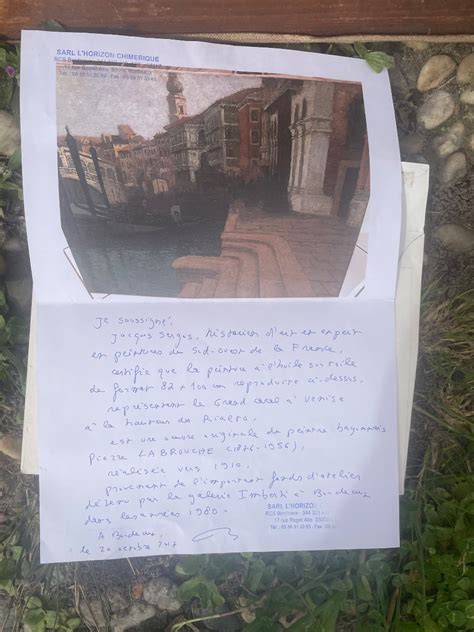 SARL L'HORIZON CHIMERIQUE
RCS Bordeaux
Je soussigné,
Jacques Sargos, historien d'art et expert
en peintures du Sud-Ouest de la France,
certifie que la peinture à l'huile sur toile
de format 82 x 100 cm reproduite ci-dessus,
représentant le Grand canal à Venise
à la hauteur du Rialto,
est une œuvre originale du peintre bayonnais
Pierre LABROUCHE (1876-1956),
réalisée vers 1910,
provenant de l'important fonds d'atelier
détenu par la galerie Imberti à Bordeaux
dans les années 1980.
SARL L'HORIZO
RCS Bordeaux
A Bordeaux,
le 20 octobre 2017